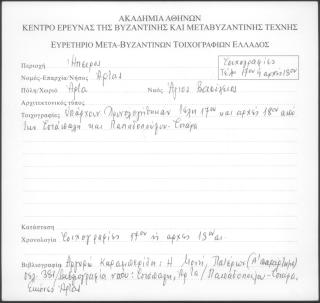 ΑΚΑΔΗΜΙΑ ΑΘΗΝΩΝ
ΚΕΝΤΡΟ ΕΡΕΥΝΑΣ ΤΗΣ ΒΥΖΑΝΤΙΝΗΣ ΚΑΙ ΜΕΤΑΒΥΖΑΝΤΙΝΗΣ ΤΕΧΝΗΣ
ΕΥΡΕΤΗΡΙΟ ΜΕΤΑ-ΒΥΖΑΝΤΙΝΩΝ ΤΟΙΧΟΓΡΑΦΙΩΝ ΕΛΛΑΔΟΣ
Περιοχή Ήπειρος
Τοιχογραφίες
Τέλη 17ου ή αρχές 18ου
Νομός-Επαρχία/Νήσος Άρτας
Πόλη/Χωριό Άρτα Ναός Άγιος Βασίλειος
Αρχιτεκτονικός τύπος
Τοιχογραφίες Υπάρχουν Χρονολογήθηκαν τέλη 17ου και αρχές 18ου από
την και Παπαδοπούλου-
Κατάσταση
Χρονολογία Τοιχογραφίες 17ου ή αρχές 18ου αι.
Βιβλιογραφία Αργυρώ Καραμπερίδη: Η Μονή Πατέρων
σελ. 351/βιβλιογραφία ναού: Άρτα/Παπαδοπούλου-
Εικόνες Άρτας